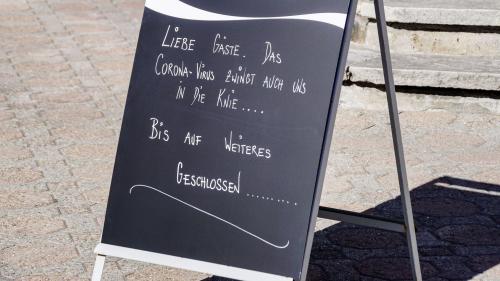 LIEBE GÄSTE. DAS
CORONA-VIRUS ZWINGT AUCH UNS
IN DIE KNIE....
BIS AUF WEITERES
GESCHLOSSEN .........